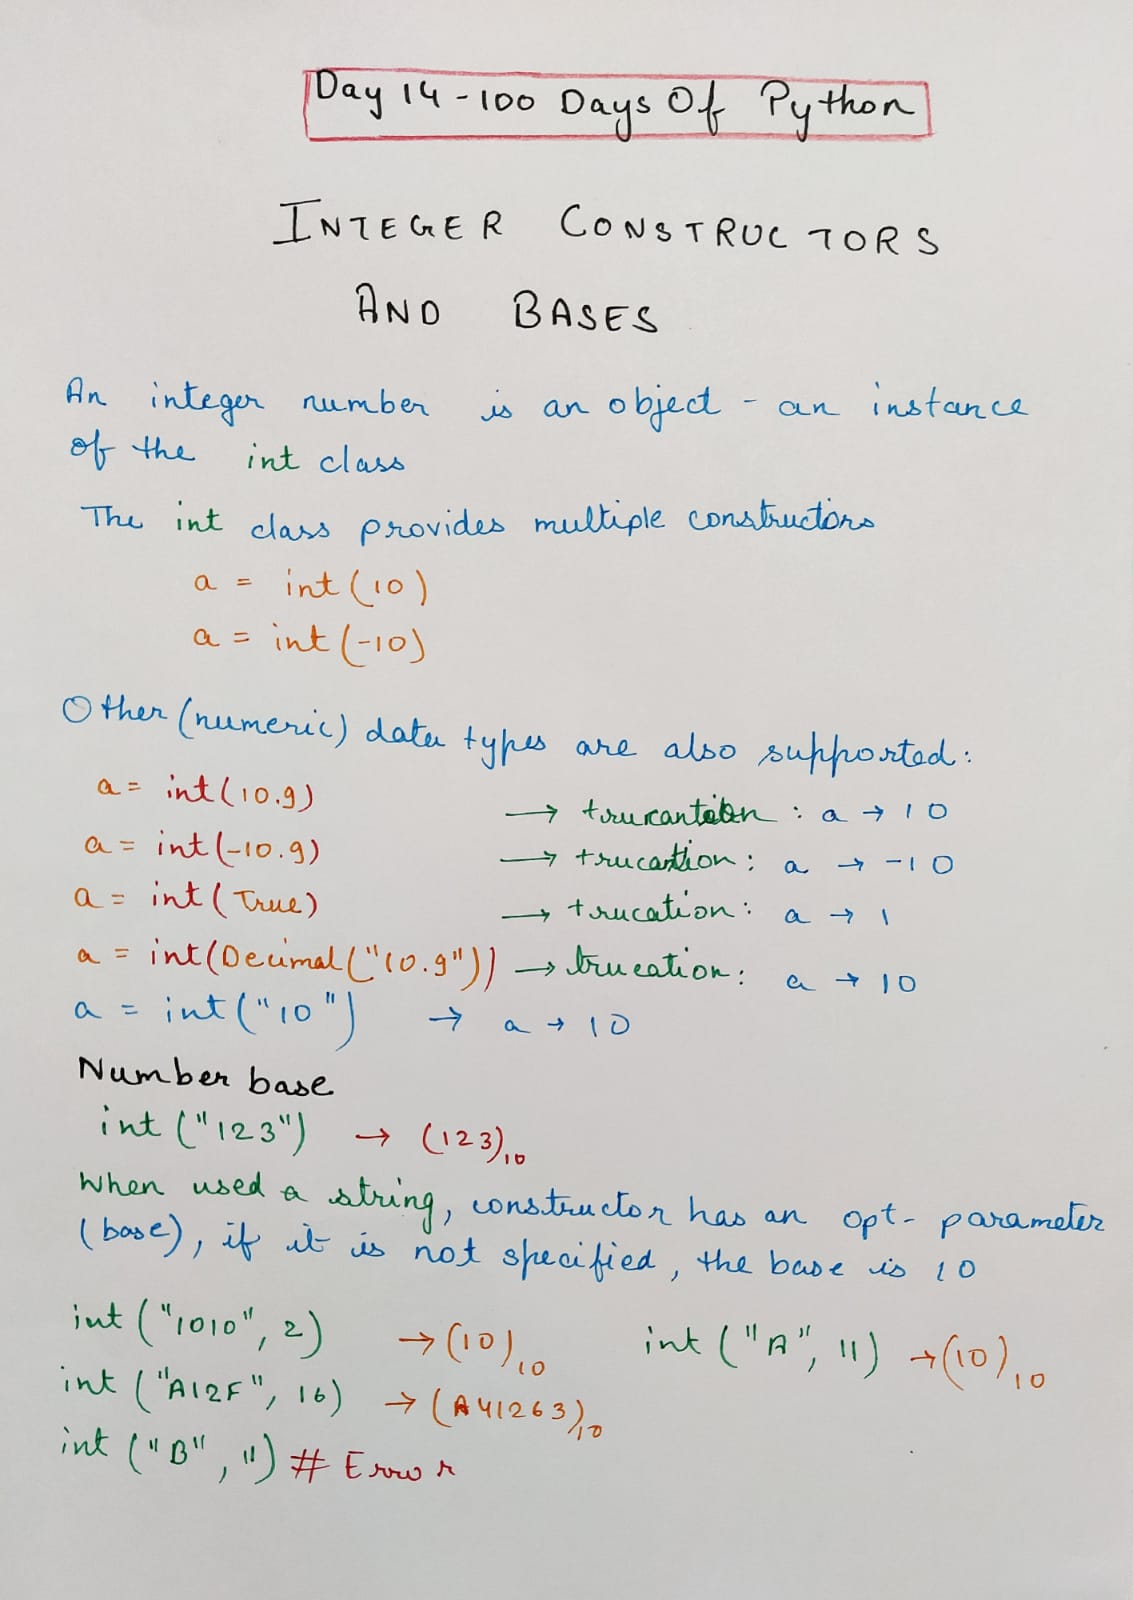 Day 14 - 100 Days Of Python
INTEGER CONSTRUCTORS
AND BASES
An integer number is an object - an instance
of the int class
The int class provides multiple constructors
a = int(10)
a = int(-10)
Other (numeric) data types are also supported:
a = int(10.9) → : a → 10
a = int(-10.9) → : a → -10
a = int(True) → trucation: a → 1
a = int(Decimal("10.9")) → trucation: a → 10
a = int("10") → a → 10
Number base
int ("123") → (123)10
When used a string, constructor has an opt- parameter
(base), if it is not specified, the base is 10
int ("1010", 2) → (10)10 int ("A", 11) → (10)10
int ("A12F", 16) → (A41263)10
int ("B", 11) # Error